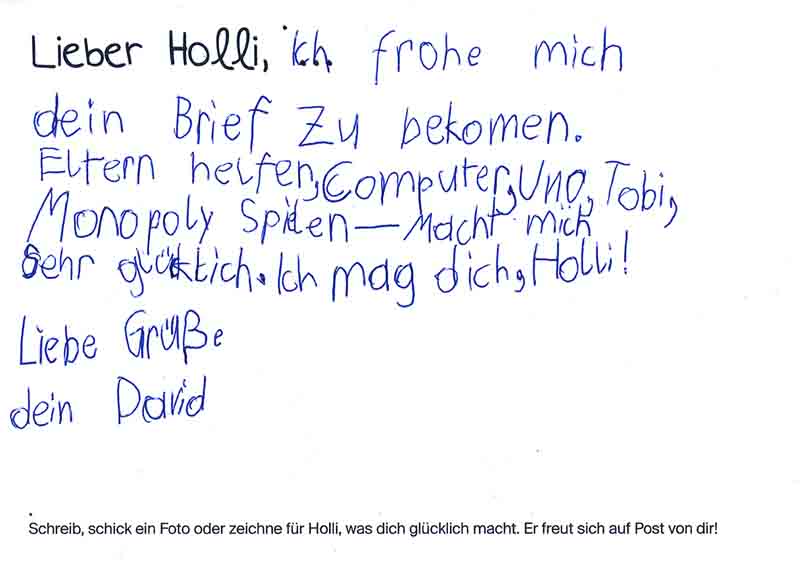 Lieber Holli, ich frohe mich
dein Brief zu bekomen.
Eltern helfen, Computer, Uno, Tobi,
Monopoly Spilen – Macht mich
Sehr glücklich. Ich mag dich, Holli!
Liebe Grüße
dein David
Schreib, schick ein Foto oder zeichne für Holli, was dich glücklich macht. Er freut sich auf Post von dir!